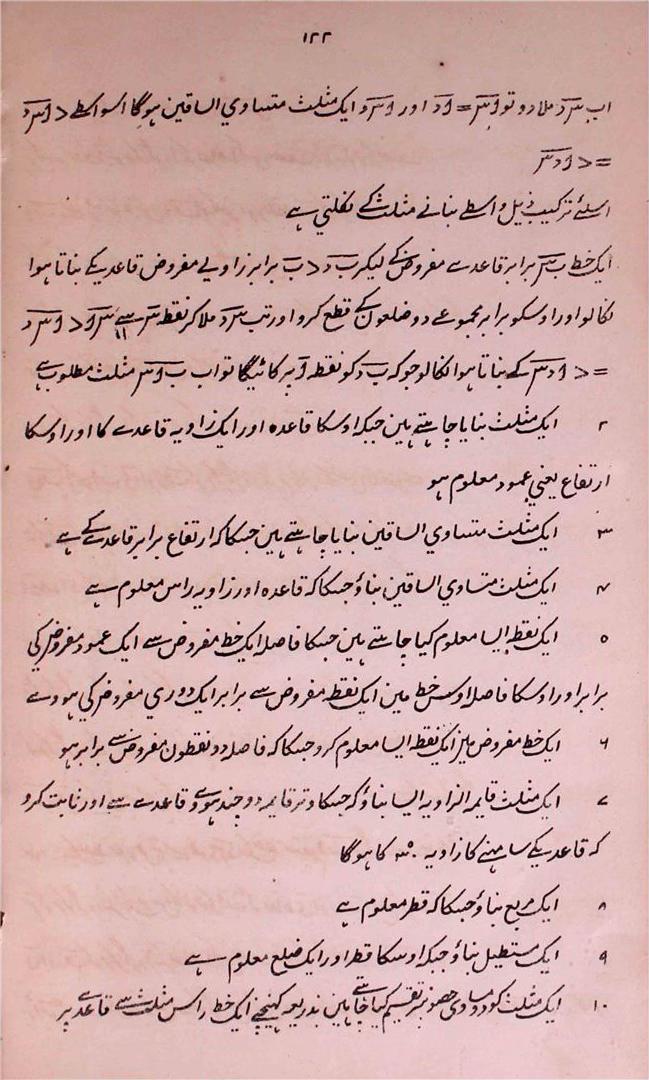 ۱۲۲
اب س د ملادو تو اس = اد اور اس د ایک مثلث متساوي الساقین ہوگا اسواسطے > اس د
= > ا د س
اسلئے ترکیب ذیل واسطے بنانے مثلث کے نکلتي ہے
ایک خط ب س برابر قاعدے مفروض کے لیکر ب د > ب برابر زاویے مفروض قاعدیکے بناتا ہوا
نکالو اور اوسکو برابر مجموعے دو ضلعون کے قطع کرو اور تب س د ملا کر نقطہ س سے س ا > اس د
= > ا د س کے بناتا ہوا نکالو جو کہ ب د کو نقطہ ا پر کاٹیگا تو اب ب اس مثلث مطلوب ہے
۲ ایک مثلث بنایا چاہتے ہین جبکہ اوسکا قاعدہ اور ایک زاویہ قاعدے کا اور اوسکا
ارتفاع یعني عمود معلوم ہو
۳ ایک مثلث متساوي الساقین بنایا چاہتے ہین جسکا کہ ارتفاع برابر قاعدے کے ہے
۴ ایک مثلث متساوي الساقین بناؤ جسکا کہ قاعدہ اور زاویہ راس معلوم ہے
۵ ایک نقطہ ایسا معلوم کیا چاہتے ہین جسکا فاصلہ ایک خط مفروض سے ایک عمود مفروض کي
برابر اور اوسکا فاصلہ اوسس خط مین ایک نقطہ مفروض سے برابر ایک دوري مفروض کي ہووے
۶ ایک خط مفروض مین ایک نقطہ ایسا معلوم کرو جسکا کہ فاصلہ دو نقطون مفروض سے برابر ہو
۷ ایک مثلث قایمہ الزاویہ ایسا بناؤ کہ جسکا وتر قایمہ دوچند ہووے قاعدے سے اور ثابت کرو
کہ قاعدیکے سامنے کا زاویہ ۳۰ کا ہوگا
۸ ایک مربع بناؤ جسکا کہ قطر معلوم ہے
۹ ایک مستطیل بناؤ جبکہ اوسکا قطر اور ایک ضلع معلوم ہے
۱۰ ایک مثلث کو دو مساوي حصونپر تقسیم کیا چاہتے ہین بذریعہ کھینچنے ایک خط راس مثلث سے قاعدے پر